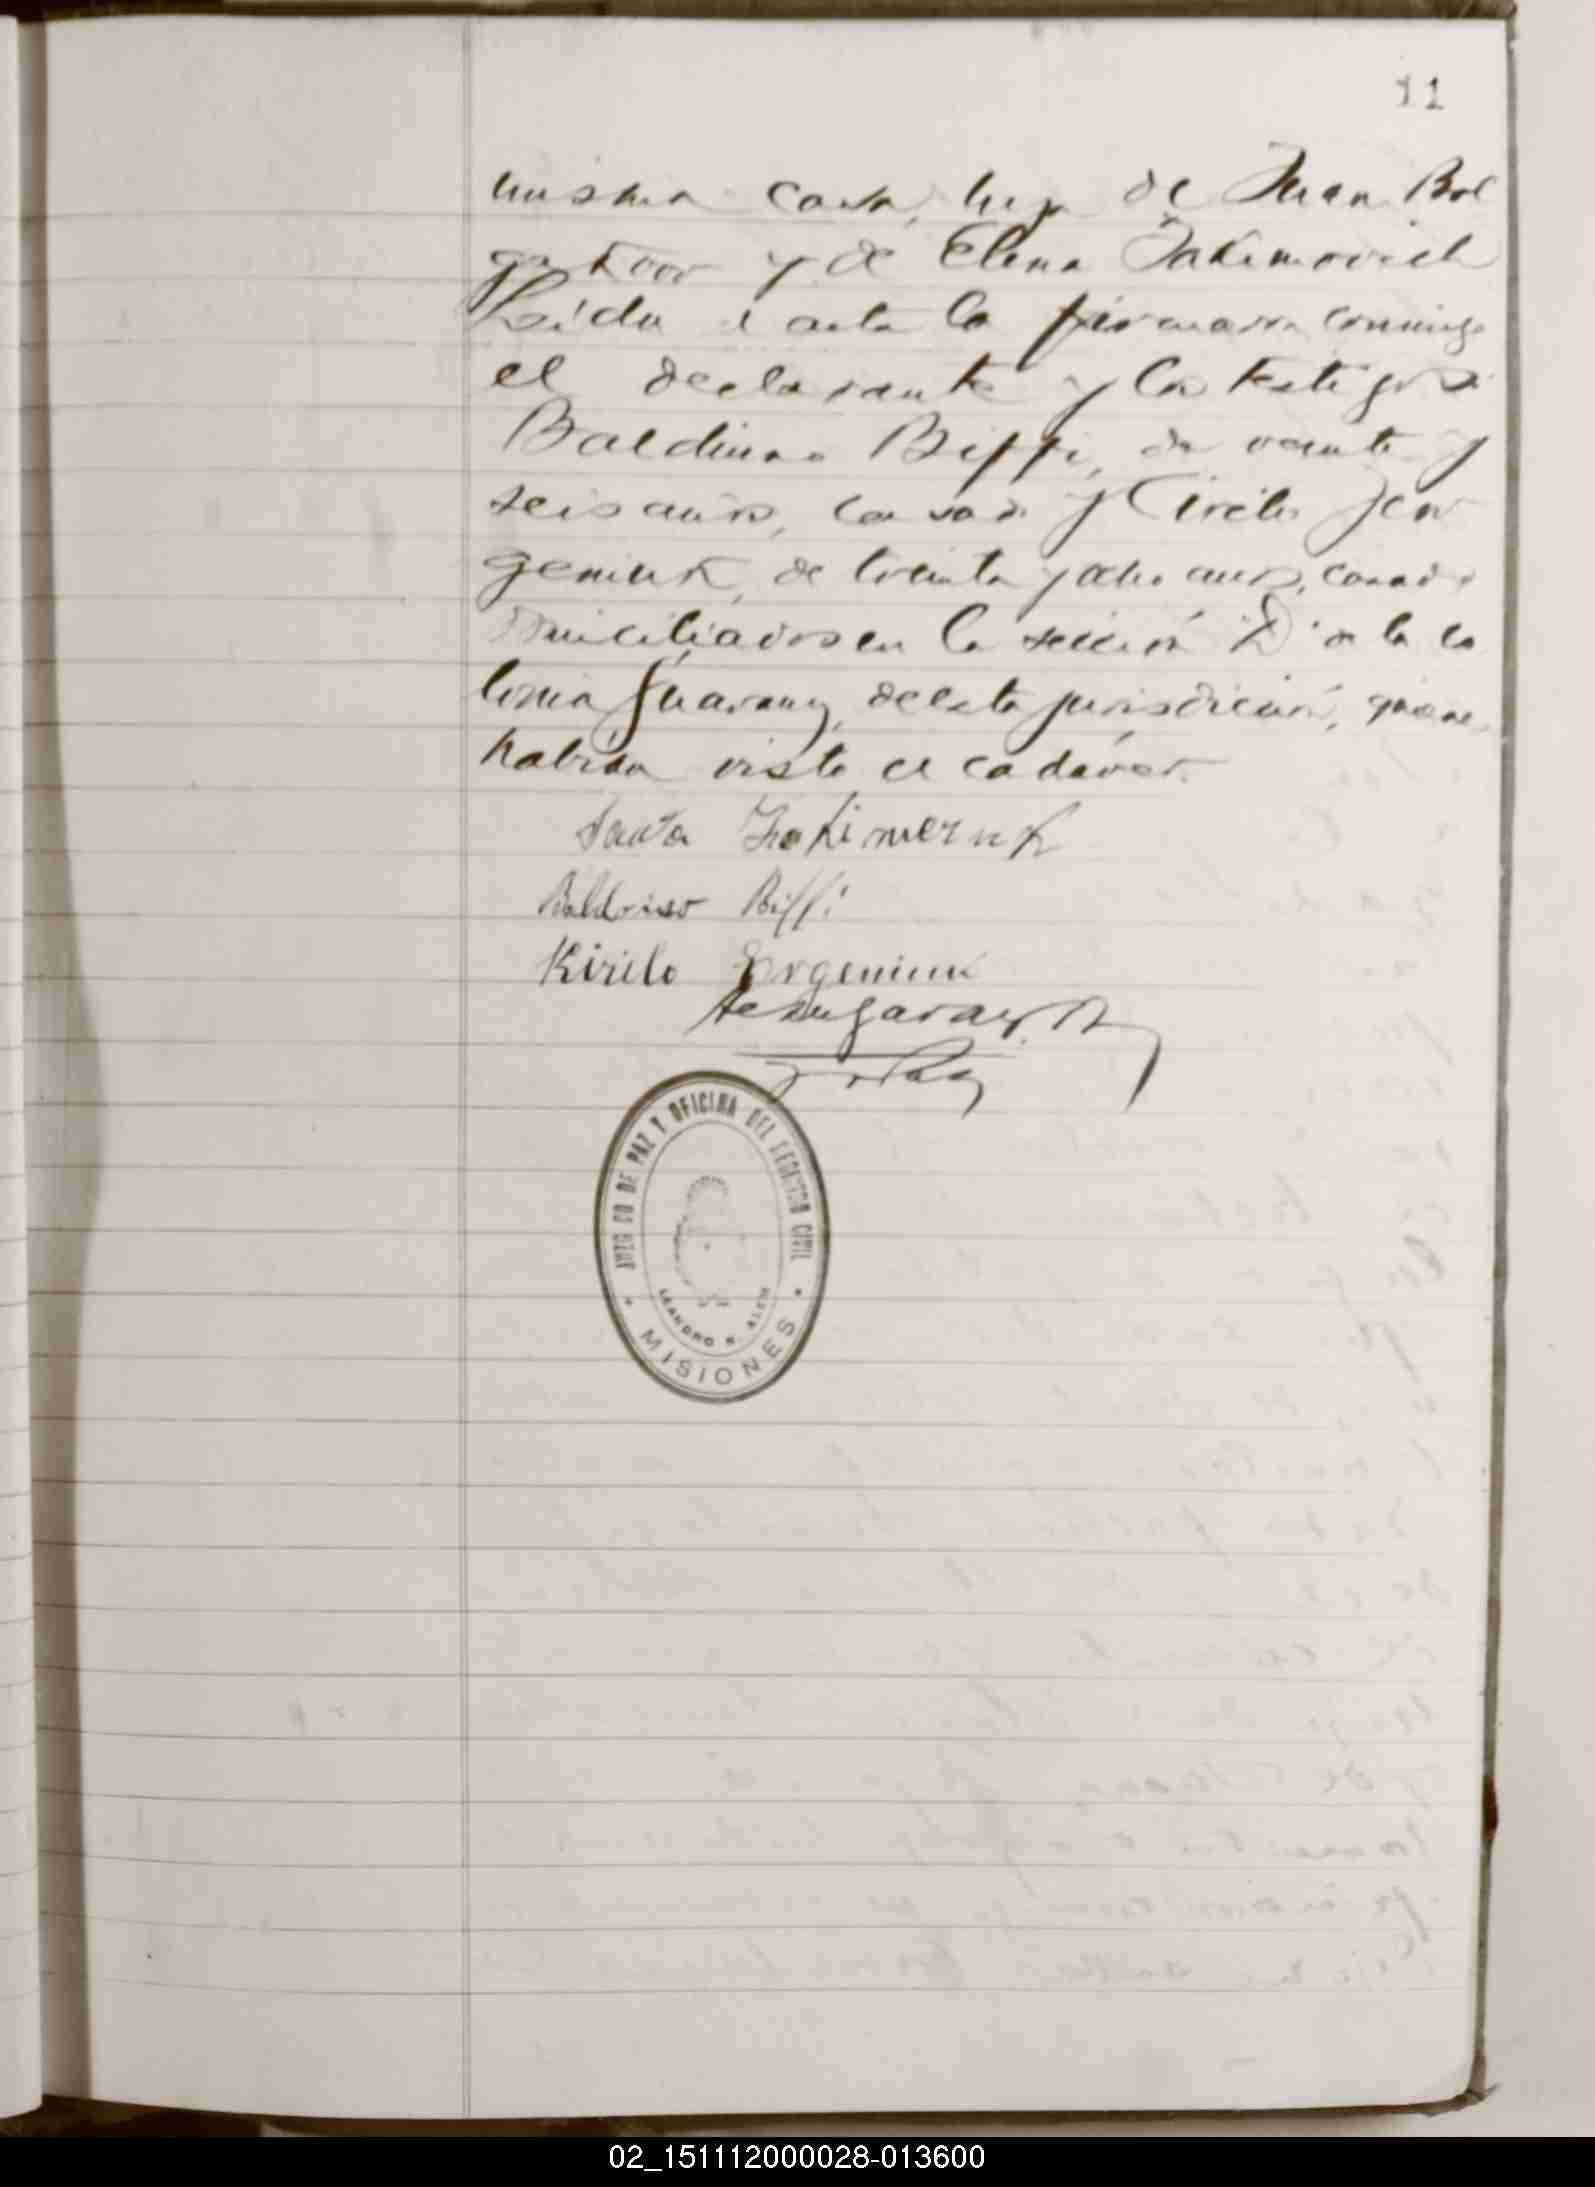 11
misma casa, hija de Juan Bol
y de Elena Jakimovich
Leida el acta la firmaron conmigo
el declarante y los testigos:
Baldino Biffi, de veinte y
seis años, casado y Cirilo Jew
geniuk, de treinta y ocho años, casado
domiciliados en la sección D de la co
lonia Guarany, de esta jurisdición, quienes
habían visto el cadáver.
Jakimczuk
Baldoino Biffi
Kirilo Ewgeniuk
JUZGADO DE PAZ Y OFICINA DEL REGISTRO CIVIL
LEANDRO N. ALEM
MISIONES
02_151112000028-013600